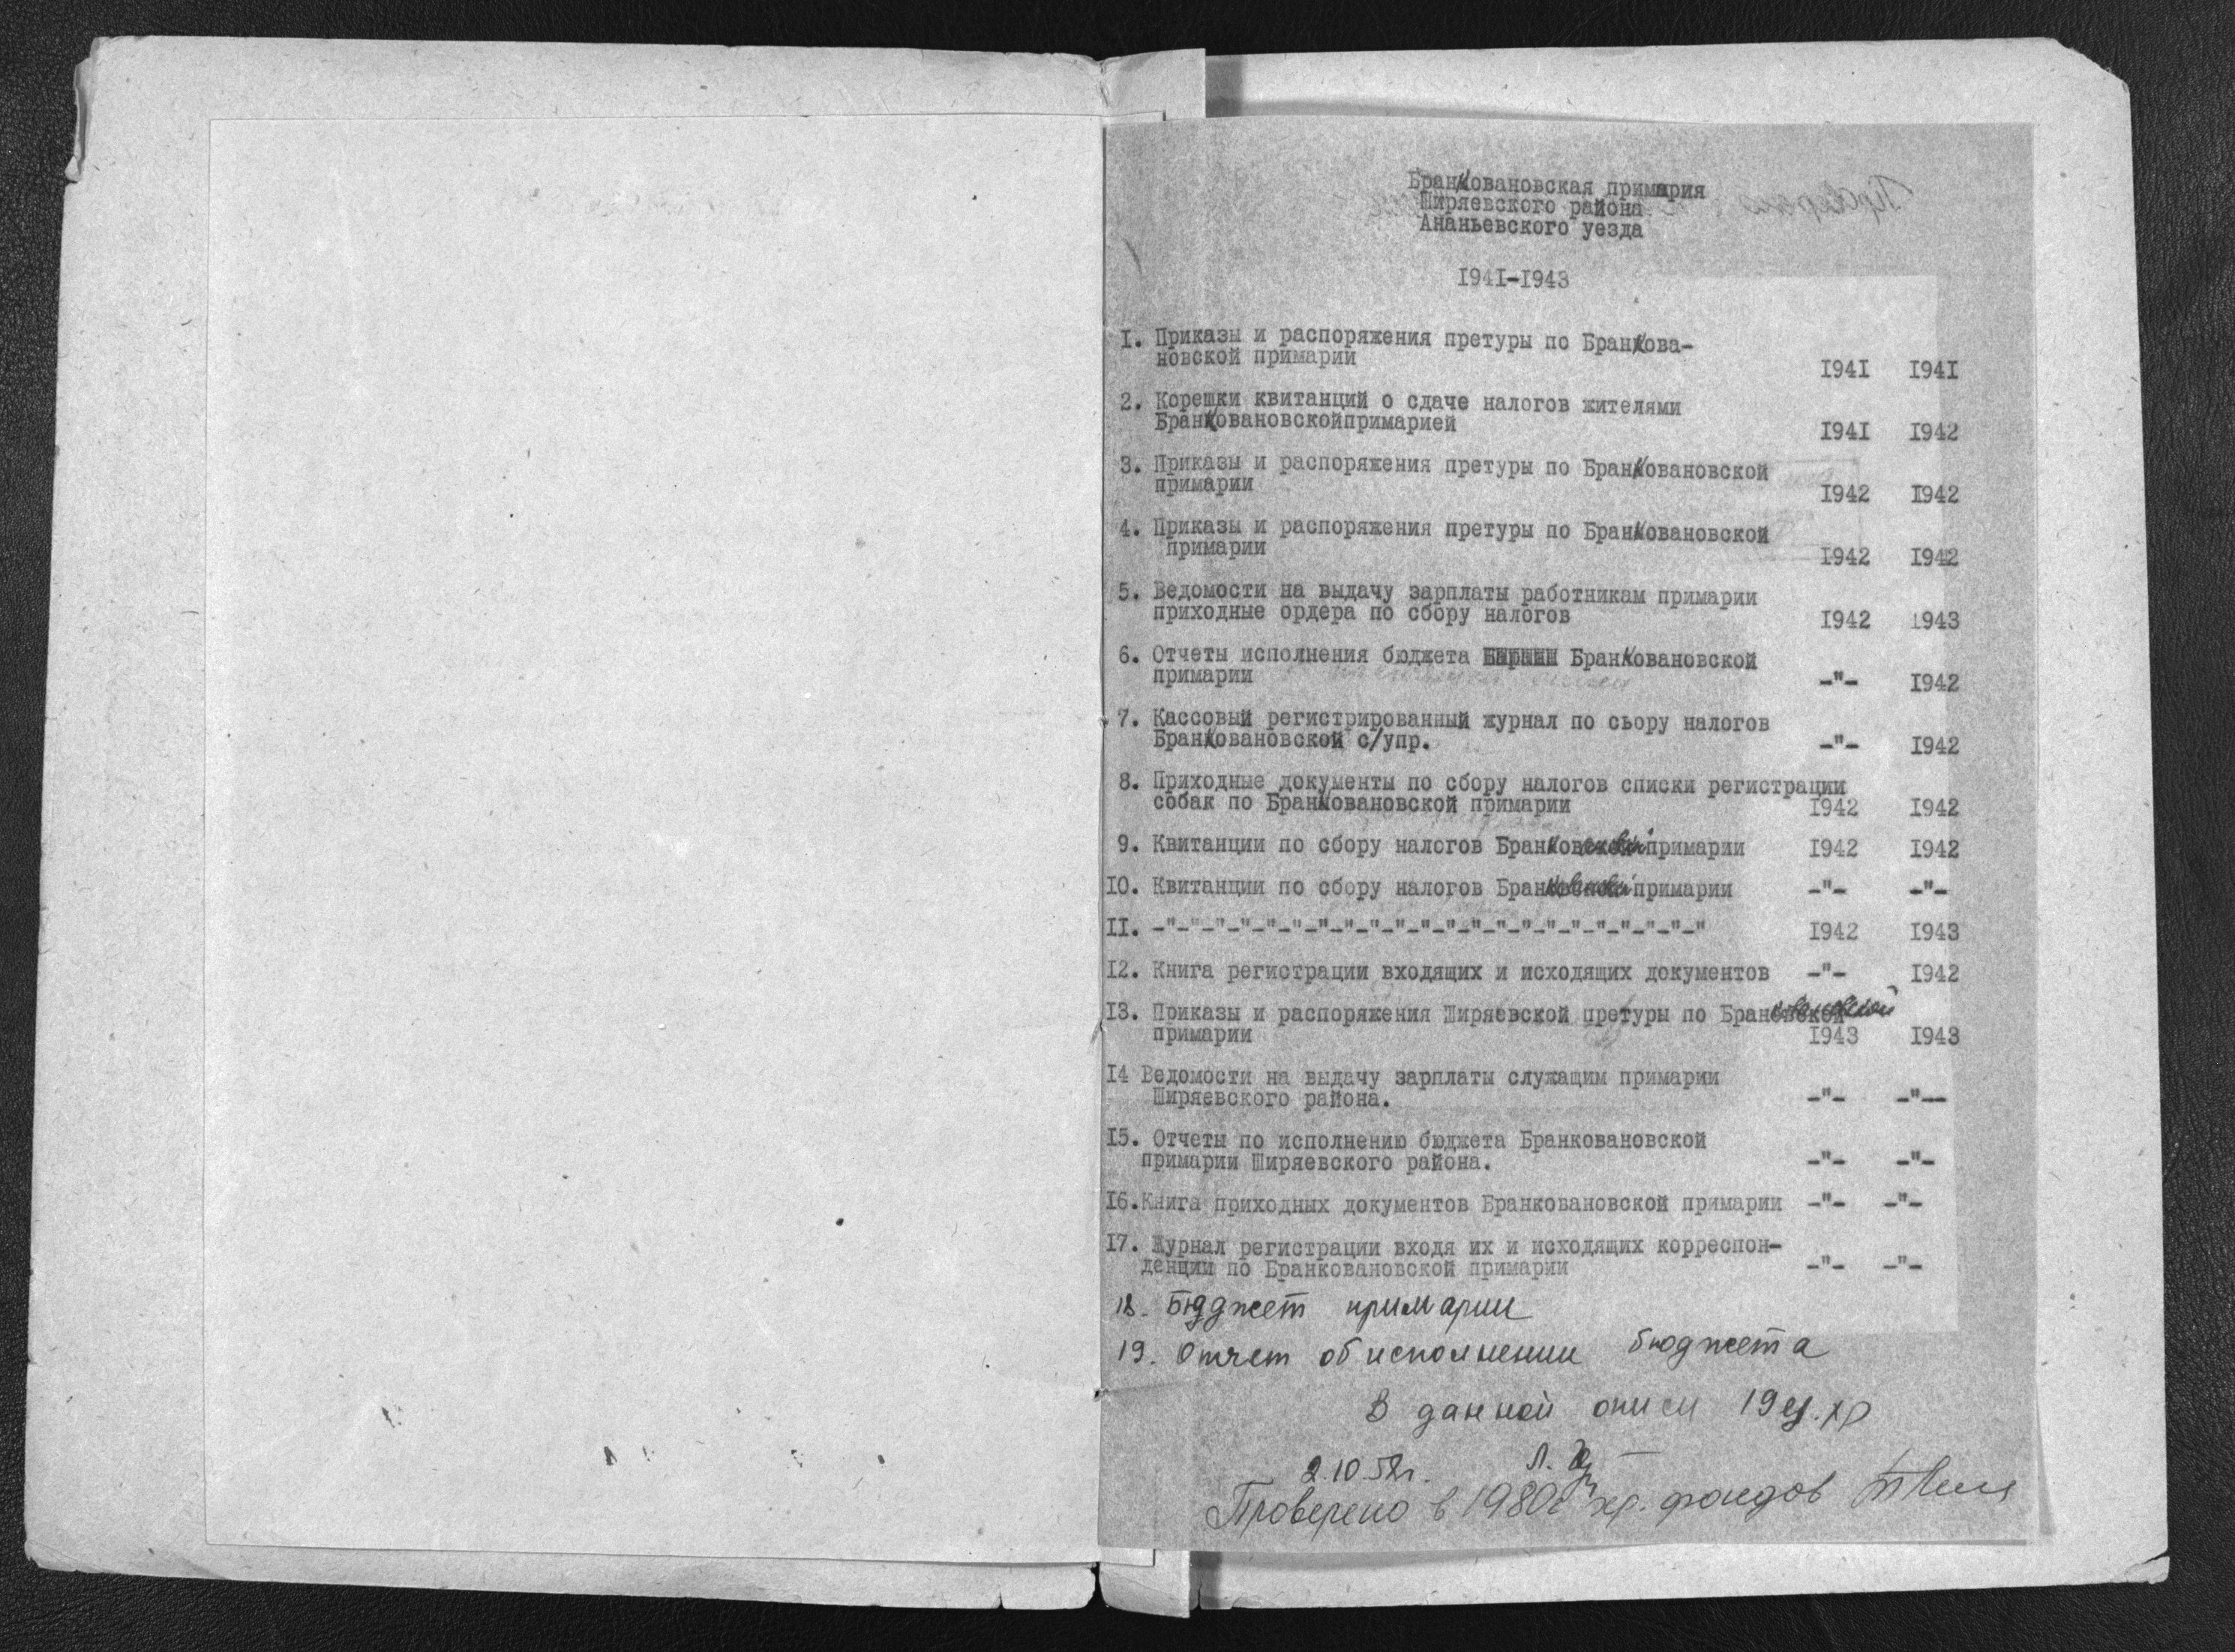 Бранковановская примария
Ширяевского района
Ананьевского уезда
I94I-I943
I. Приказы и распоряжения претуры по Бранкова-
новской примарии I94I I94I
2. Корешки квитанций о сдаче налогов жителями
Бранковановскойпримарией I94I I942
3. Приказы и распоряжения претуры по Бранковановской
примарии I942 I942
4. Приказы и распоряжения претуры по Бранковановской
примарии I942 I942
5. Ведомости на выдачу зарплаты работникам примарии
приходные ордера по сбору налогов I942 I943
6. Отчеты исполнения бюджета Бранковановской
примарии -"- I942
7. Кассовый регистрированный журнал по сьору налогов
Бранковановской с/упр. -"- I942
8. Приходные документы по сбору налогов списки регистрации
собак по Бранковановской примарии I942 I942
9. Квитанции по сбору налогов Бранковановской примарии I942 I942
I0. Квитанции по сбору налогов Бранковановской примарии -"- -"-
II. -"-"-"-"-"-"-"-"-"-"-"-"-"-"-"-"-"-"-"-"-"-" I942 I943
I2. Книга регистрации входящих и исходящих документов -"- I942
I3. Приказы и распоряжения Ширяевской претуры по Бранковановской
примарии I943 I943
I4 Ведомости на выдачу зарплаты служащим примарии
Ширяевского района. -"- -"--
I5. Отчеты по исполнению бюджета Бранковановской
примарии Ширяевского района. -"- -"-
I6.Книга приходных документов Бранковановской примарии -"- -"-
I7. Журнал регистрации входя их и исходящих корреспон-
денции по Бранковановской примарии -"- -"-
18. Бюджет примарии
19. Отчет об исполнении бюджета
В данной описи 19 ед. хр
2.10.58г.
Проверено в 1980г хр. фондов